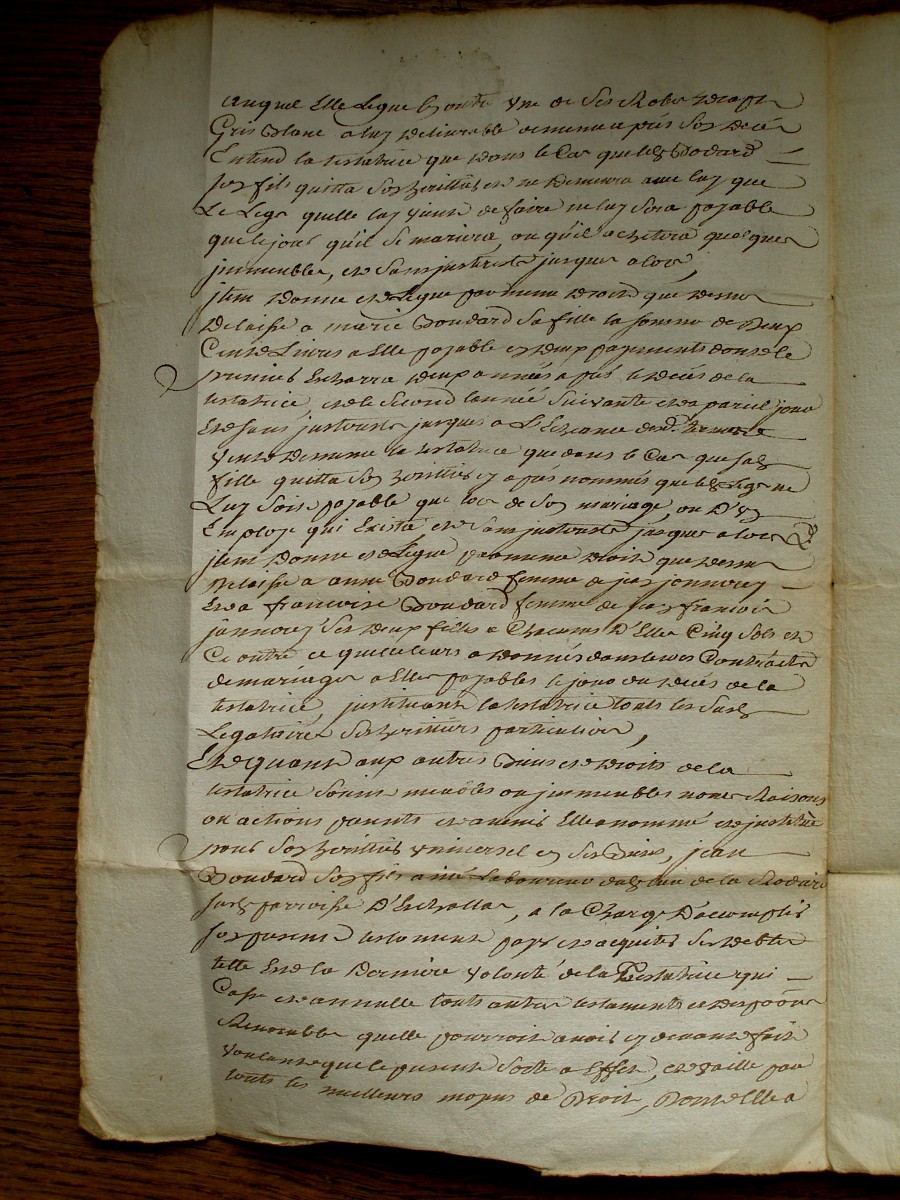 auquel Elle Legue En outre vne de Ses Robes de drap
Gris blanc a luy delivrable annnee apres Son deces
Entend la testatrice que dans le Cas que led. Doudard
son fils quitta Son heritier et ne Demeura avec luy que
Le Legs quelle luy vient de faire ne luy Sera payable
que le jour quil Se mariera, ou quil achetera quelques
jmmeubles, et Sans jnterest jusques alors,
jtem Donne et Legue par meme Droit que dessus
Delaisse a marie Doudard Sa fille la somme de Deux
Cents Livres a Elle payable en deux payements dont le
premier Echerra deux annees apres le deces de la
testatrice, et le Second lannee Suivante et a pareil jour
et sans jnterest jusques a L'Echeance
veut de meme la testatrice que dans le Cas que sad.
fille quitta Son heritier cy apres nommé que led. Legs ne
Luy Soit payable que lors de Son mariage, ou D'vn
Employ qui Existe et Sans jnterest jusques alors
jtem Donne et Legue par meme Droit que dessus
Delaisse a anne Doudard femme de jean jonnorey
et a francoise Doudard femme de francois
jonnorey Ses deux filles a Chacune D'Elles Cinq Sols et
Ce outre ce quelle leurs a donnés dans leurs Contracts
de mariages a Elles payables le jour du deces de la
testatrice jnstituant la testatrice touts les Susd.
Legataires Ses heritiers particuliers,
Et quant aux autres Biens et Droits de la
testatrice Soient meubles ou jmmeubles noms Raisons
ou actions presents et avenir Elle a nommé et jnstitué
pour Son heritier vniversel en Ses Biens, jean
Doudard Son fils ainé Laboureur aud. lieu de la Rodiere
susd. parroisse D'Echallas, a la Charge D'accomplir
son present testament payer et acquiter Ses debtes
telle Est la Derniere volonté de la Testatrice qui
Casse et annulle touts autres testaments et dispoõns
Semblables quelle pourroit avoir cy devant fait
voulant que le present Sorte a Effet, et vaille par
touts les meilleurs moyens de Droit, Dont Elle a